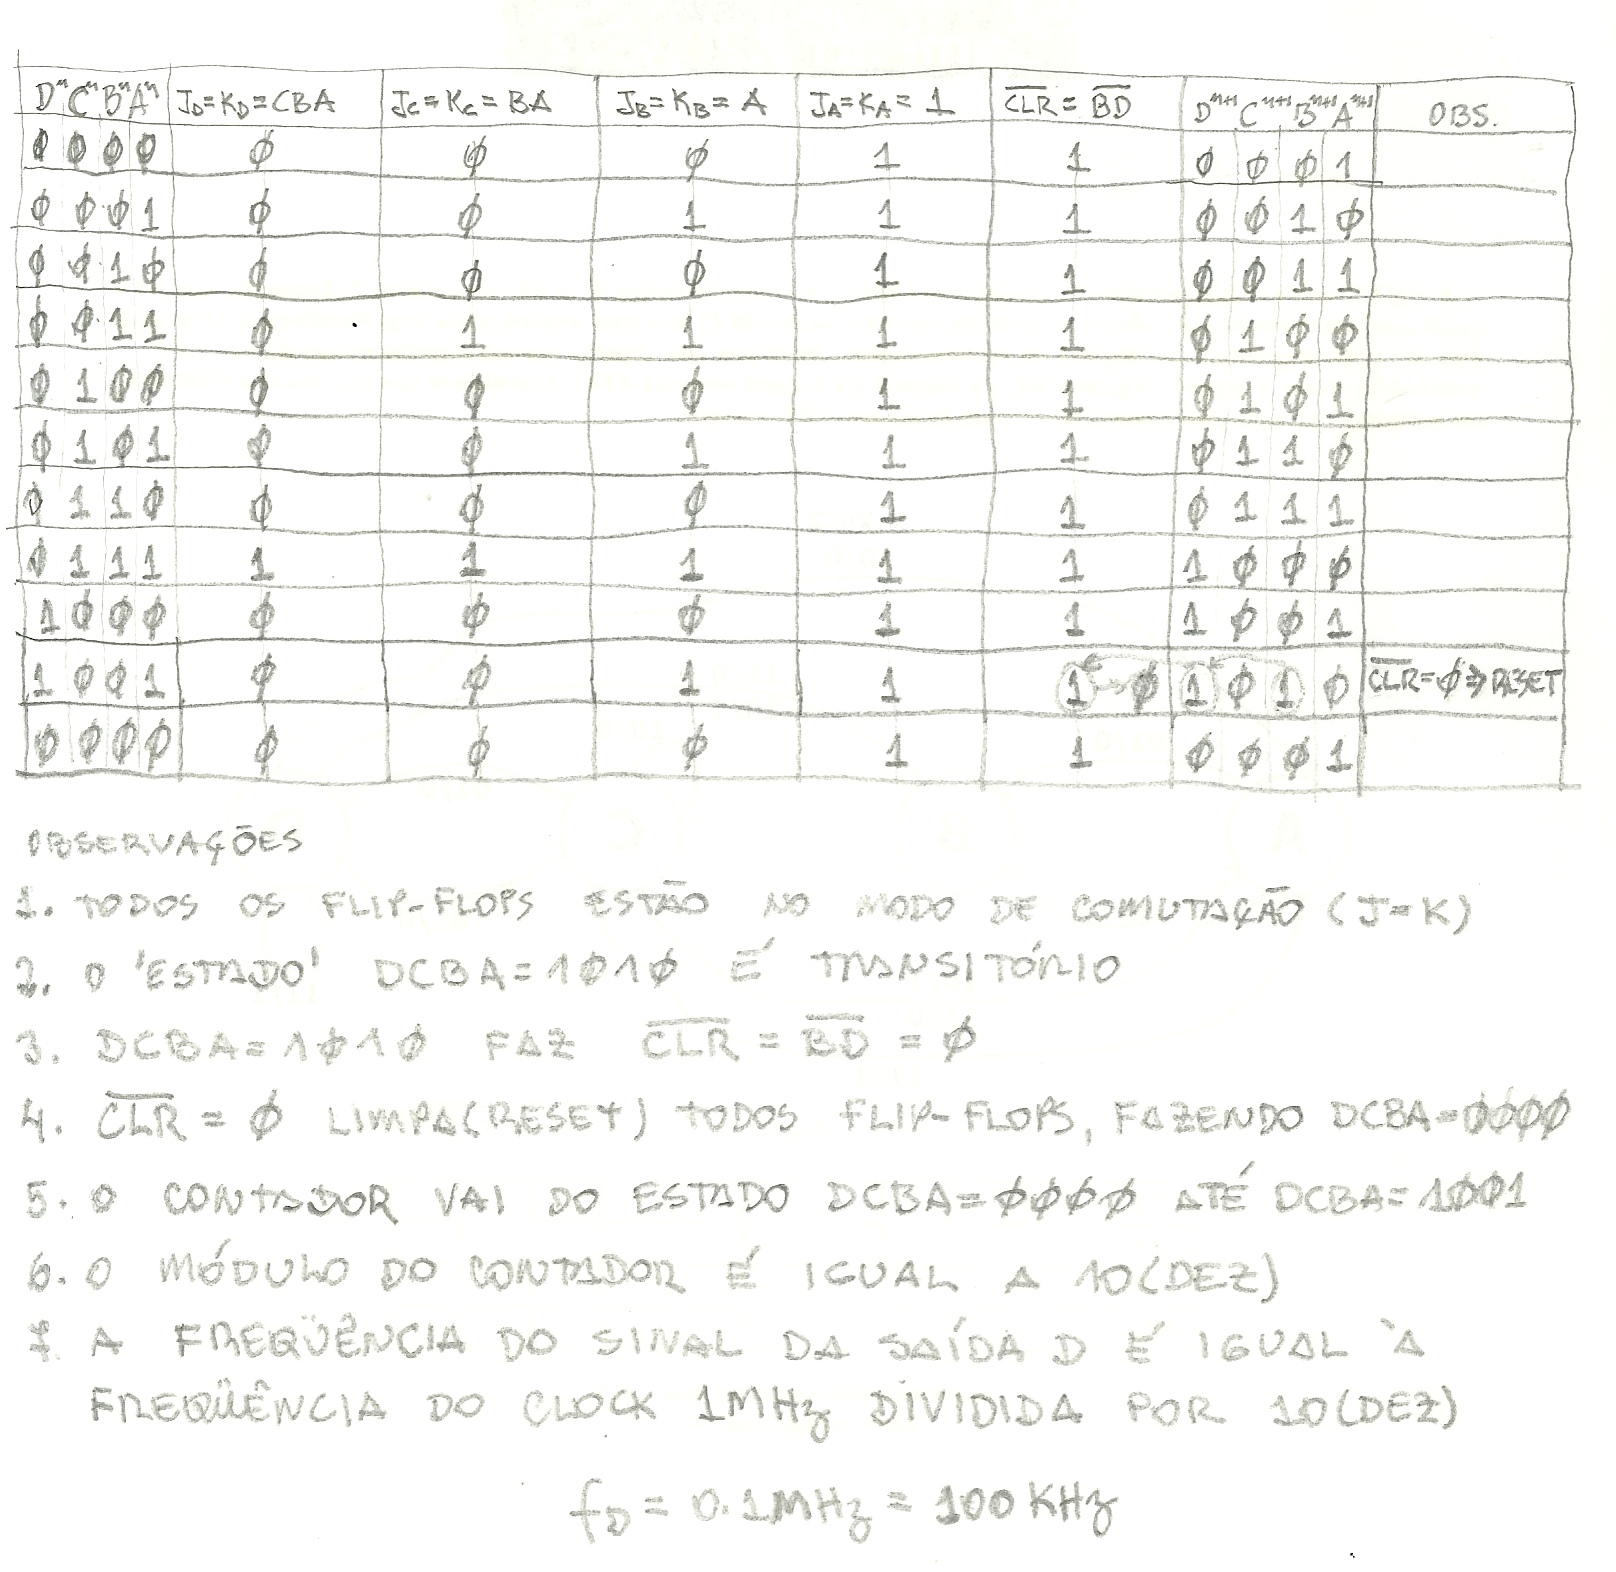 Dⁿ Cⁿ Bⁿ Aⁿ J_D=K_D=CBA J_C=K_C=BA J_B=K_B=A J_A=K_A=1 C̅L̅R̅=B̅D̅ Dⁿ⁺¹ Cⁿ⁺¹ Bⁿ⁺¹ Aⁿ⁺¹ OBS.
0 0 0 0 0 0 0 1 1 0 0 0 1
0 0 0 1 0 0 1 1 1 0 0 1 0
0 0 1 0 0 0 0 1 1 0 0 1 1
0 0 1 1 0 1 1 1 1 0 1 0 0
0 1 0 0 0 0 0 1 1 0 1 0 1
0 1 0 1 0 0 1 1 1 0 1 1 0
0 1 1 0 0 0 0 1 1 0 1 1 1
0 1 1 1 1 1 1 1 1 1 0 0 0
1 0 0 0 0 0 0 1 1 1 0 0 1
1 0 0 1 0 0 1 1 1→0 1 0 1 0 C̅L̅R̅=0⇒RESET
0 0 0 0 0 0 0 1 1 0 0 0 1
OBSERVAÇÕES
1. TODOS OS FLIP-FLOPS ESTÃO NO MODO DE COMUTAÇÃO (J=K)
2. O 'ESTADO' DCBA=1010 É TRANSITÓRIO
3. DCBA=1010 FAZ C̅L̅R̅ = B̅D̅ = 0
4. C̅L̅R̅ = 0 LIMPA(RESET) TODOS FLIP-FLOPS, FAZENDO DCBA=0000
5. O CONTADOR VAI DO ESTADO DCBA=0000 ATÉ DCBA=1001
6. O MÓDULO DO CONTADOR É IGUAL A 10(DEZ)
7. A FREQÜÊNCIA DO SINAL DA SAÍDA D É IGUAL À
FREQÜÊNCIA DO CLOCK 1MHz DIVIDIDA POR 10(DEZ)
f_D = 0.1MHz = 100 KHz